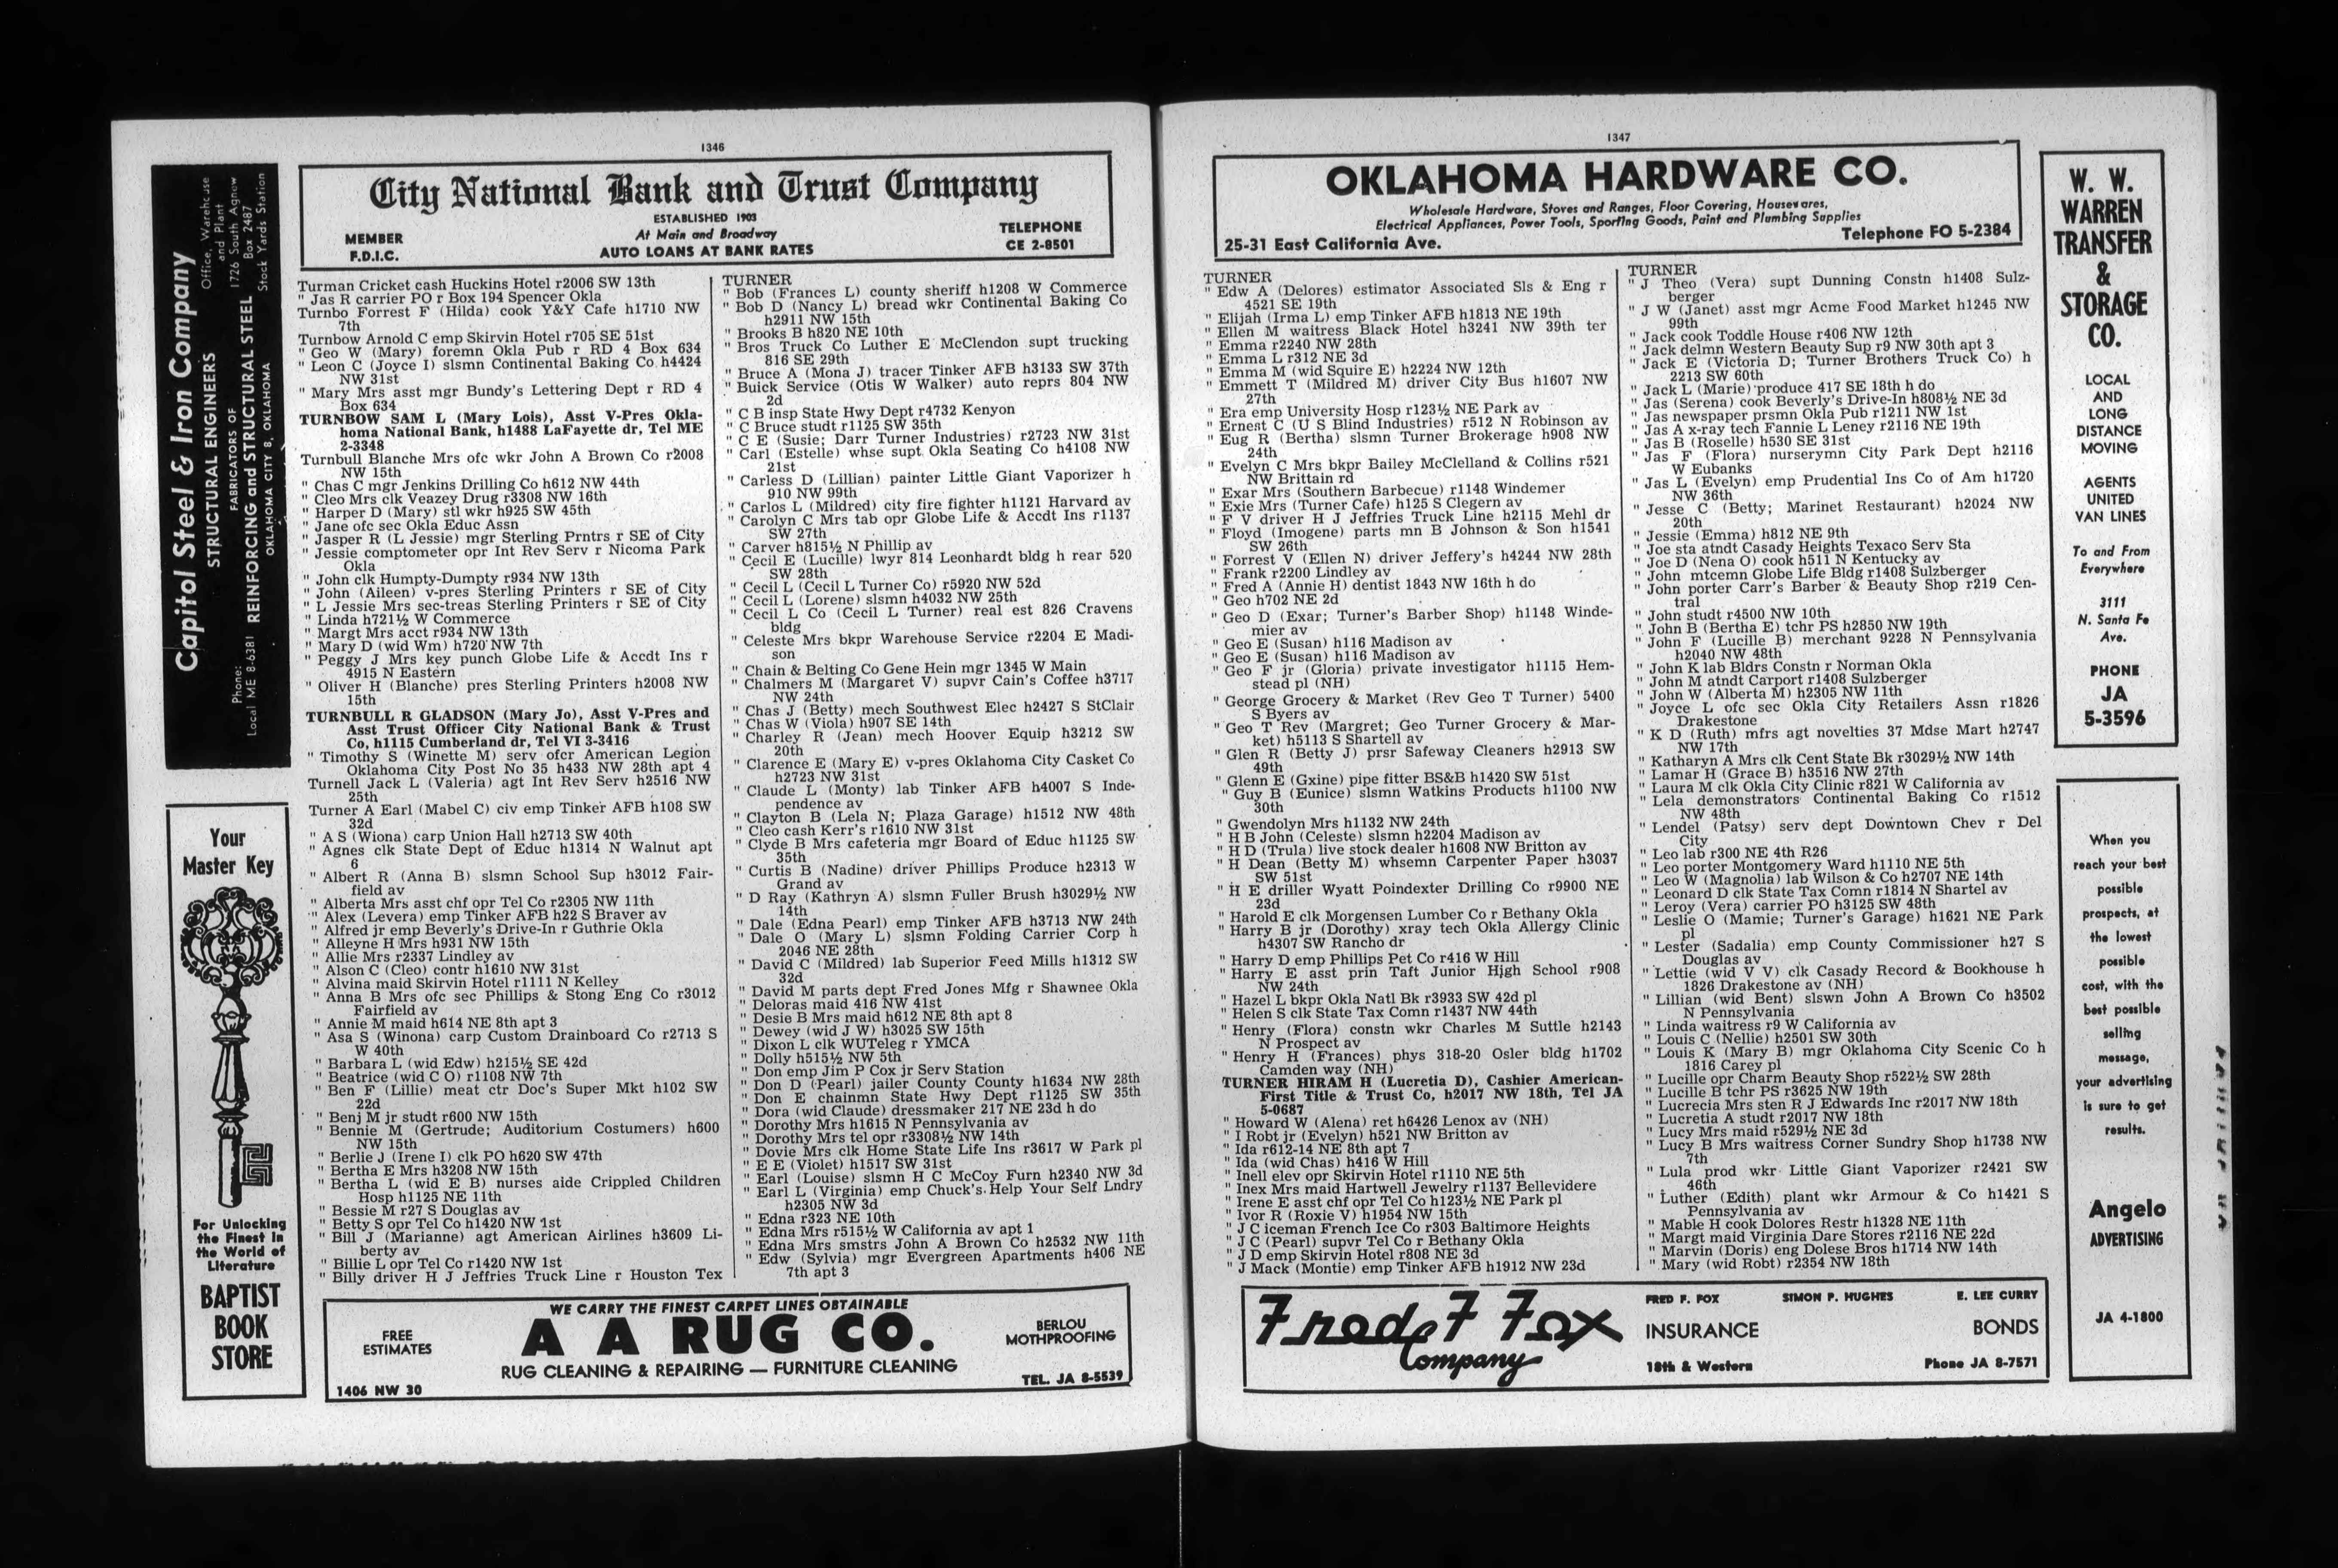 1346
Capitol Steel & Iron Company
STRUCTURAL ENGINEERS
FABRICATORS OF
REINFORCING and STRUCTURAL STEEL
OKLAHOMA CITY 8, OKLAHOMA
Office, Warehouse
and Plant
1726 South Agnew
Box 2487
Stock Yards Station
Phone:
Local ME 8-6381
Your
Master Key
For Unlocking
the Finest In
the World of
Literature
BAPTIST
BOOK
STORE
City National Bank and Trust Company
ESTABLISHED 1903
At Main and Broadway
AUTO LOANS AT BANK RATES
MEMBER
F.D.I.C.
TELEPHONE
CE 2-8501
Turman Cricket cash Huckins Hotel r2006 SW 13th
" Jas R carrier PO r Box 194 Spencer Okla
Turnbo Forrest F (Hilda) cook Y&Y Cafe h1710 NW
7th
Turnbow Arnold C emp Skirvin Hotel r705 SE 51st
" Geo W (Mary) foremn Okla Pub r RD 4 Box 634
" Leon C (Joyce I) slsmn Continental Baking Co h4424
NW 31st
" Mary Mrs asst mgr Bundy's Lettering Dept r RD 4
Box 634
TURNBOW SAM L (Mary Lois), Asst V-Pres Okla-
homa National Bank, h1488 LaFayette dr, Tel ME
2-3348
Turnbull Blanche Mrs ofc wkr John A Brown Co r2008
NW 15th
" Chas C mgr Jenkins Drilling Co h612 NW 44th
" Cleo Mrs clk Veazey Drug r3308 NW 16th
" Harper D (Mary) stl wkr h925 SW 45th
" Jane ofc sec Okla Educ Assn
" Jasper R (L Jessie) mgr Sterling Prntrs r SE of City
" Jessie comptometer opr Int Rev Serv r Nicoma Park
Okla
" John clk Humpty-Dumpty r934 NW 13th
" John (Aileen) v-pres Sterling Printers r SE of City
" L Jessie Mrs sec-treas Sterling Printers r SE of City
" Linda h721½ W Commerce
" Margt Mrs acct r934 NW 13th
" Mary D (wid Wm) h720 NW 7th
" Peggy J Mrs key punch Globe Life & Accdt Ins r
4915 N Eastern
" Oliver H (Blanche) pres Sterling Printers h2008 NW
15th
TURNBULL R GLADSON (Mary Jo), Asst V-Pres and
Asst Trust Officer City National Bank & Trust
Co, h1115 Cumberland dr, Tel VI 3-3416
" Timothy S (Winette M) serv ofcr American Legion
Oklahoma City Post No 35 h433 NW 28th apt 4
Turnell Jack L (Valeria) agt Int Rev Serv h2516 NW
25th
Turner A Earl (Mabel C) civ emp Tinker AFB h108 SW
32d
" A S (Wiona) carp Union Hall h2713 SW 40th
" Agnes clk State Dept of Educ h1314 N Walnut apt
6
" Albert R (Anna B) slsmn School Sup h3012 Fair-
field av
" Alberta Mrs asst chf opr Tel Co r2305 NW 11th
" Alex (Levera) emp Tinker AFB h22 S Braver av
" Alfred jr emp Beverly's Drive-In r Guthrie Okla
" Alleyne H Mrs h931 NW 15th
" Allie Mrs r2337 Lindley av
" Alson C (Cleo) contr h1610 NW 31st
" Alvina maid Skirvin Hotel r1111 N Kelley
" Anna B Mrs ofc sec Phillips & Stong Eng Co r3012
Fairfield av
" Annie M maid h614 NE 8th apt 3
" Asa S (Winona) carp Custom Drainboard Co r2713 S
W 40th
" Barbara L (wid Edw) h215½ SE 42d
" Beatrice (wid C O) r1108 NW 7th
" Ben F (Lillie) meat ctr Doc's Super Mkt h102 SW
22d
" Benj M jr studt r600 NW 15th
" Bennie M (Gertrude; Auditorium Costumers) h600
NW 15th
" Berlie J (Irene I) clk PO h620 SW 47th
" Bertha E Mrs h3208 NW 15th
" Bertha L (wid E B) nurses aide Crippled Children
Hosp h1125 NE 11th
" Bessie M r27 S Douglas av
" Betty S opr Tel Co h1420 NW 1st
" Bill J (Marianne) agt American Airlines h3609 Li-
berty av
" Billie L opr Tel Co r1420 NW 1st
" Billy driver H J Jeffries Truck Line r Houston Tex
TURNER
" Bob (Frances L) county sheriff h1208 W Commerce
" Bob D (Nancy L) bread wkr Continental Baking Co
h2911 NW 15th
" Brooks B h820 NE 10th
" Bros Truck Co Luther E McClendon supt trucking
816 SE 29th
" Bruce A (Mona J) tracer Tinker AFB h3133 SW 37th
" Buick Service (Otis W Walker) auto reprs 804 NW
2d
" C B insp State Hwy Dept r4732 Kenyon
" C Bruce studt r1125 SW 35th
" C E (Susie; Darr Turner Industries) r2723 NW 31st
" Carl (Estelle) whse supt Okla Seating Co h4108 NW
21st
" Carless D (Lillian) painter Little Giant Vaporizer h
910 NW 99th
" Carlos L (Mildred) city fire fighter h1121 Harvard av
" Carolyn C Mrs tab opr Globe Life & Accdt Ins r1137
SW 27th
" Carver h815½ N Phillip av
" Cecil E (Lucille) lwyr 814 Leonhardt bldg h rear 520
SW 28th
" Cecil L (Cecil L Turner Co) r5920 NW 52d
" Cecil L (Lorene) slsmn h4032 NW 25th
" Cecil L Co (Cecil L Turner) real est 826 Cravens
bldg
" Celeste Mrs bkpr Warehouse Service r2204 E Madi-
son
" Chain & Belting Co Gene Hein mgr 1345 W Main
" Chalmers M (Margaret V) supvr Cain's Coffee h3717
NW 24th
" Chas J (Betty) mech Southwest Elec h2427 S StClair
" Chas W (Viola) h907 SE 14th
" Charley R (Jean) mech Hoover Equip h3212 SW
20th
" Clarence E (Mary E) v-pres Oklahoma City Casket Co
h2723 NW 31st
" Claude L (Monty) lab Tinker AFB h4007 S Inde-
pendence av
" Clayton B (Lela N; Plaza Garage) h1512 NW 48th
" Cleo cash Kerr's r1610 NW 31st
" Clyde B Mrs cafeteria mgr Board of Educ h1125 SW
35th
" Curtis B (Nadine) driver Phillips Produce h2313 W
Grand av
" D Ray (Kathryn A) slsmn Fuller Brush h3029½ NW
14th
" Dale (Edna Pearl) emp Tinker AFB h3713 NW 24th
" Dale O (Mary L) slsmn Folding Carrier Corp h
2046 NE 28th
" David C (Mildred) lab Superior Feed Mills h1312 SW
32d
" David M parts dept Fred Jones Mfg r Shawnee Okla
" Deloras maid 416 NW 41st
" Desie B Mrs maid h612 NE 8th apt 8
" Dewey (wid J W) h3025 SW 15th
" Dixon L clk WUTeleg r YMCA
" Dolly h515½ NW 5th
" Don emp Jim P Cox jr Serv Station
" Don D (Pearl) jailer County County h1634 NW 28th
" Don E chainmn State Hwy Dept r1125 SW 35th
" Dora (wid Claude) dressmaker 217 NE 23d h do
" Dorothy Mrs h1615 N Pennsylvania av
" Dorothy Mrs tel opr r3308½ NW 14th
" Dovie Mrs clk Home State Life Ins r3617 W Park pl
" E E (Violet) h1517 SW 31st
" Earl (Louise) slsmn H C McCoy Furn h2340 NW 3d
" Earl L (Virginia) emp Chuck's Help Your Self Lndry
h2305 NW 3d
" Edna r323 NE 10th
" Edna Mrs r515½ W California av apt 1
" Edna Mrs smstrs John A Brown Co h2532 NW 11th
" Edw (Sylvia) mgr Evergreen Apartments h406 NE
7th apt 3
WE CARRY THE FINEST CARPET LINES OBTAINABLE
FREE
ESTIMATES
A A RUG CO.
BERLOU
MOTHPROOFING
RUG CLEANING & REPAIRING — FURNITURE CLEANING
1406 NW 30
TEL. JA 8-5539
1347
OKLAHOMA HARDWARE CO.
Wholesale Hardware, Stoves and Ranges, Floor Covering, Housewares,
Electrical Appliances, Power Tools, Sporting Goods, Paint and Plumbing Supplies
25-31 East California Ave.
Telephone FO 5-2384
TURNER
" Edw A (Delores) estimator Associated Sls & Eng r
4521 SE 19th
" Elijah (Irma L) emp Tinker AFB h1813 NE 19th
" Ellen M waitress Black Hotel h3241 NW 39th ter
" Emma r2240 NW 28th
" Emma L r312 NE 3d
" Emma M (wid Squire E) h2224 NW 12th
" Emmett T (Mildred M) driver City Bus h1607 NW
27th
" Era emp University Hosp r123½ NE Park av
" Ernest C (U S Blind Industries) r512 N Robinson av
" Eug R (Bertha) slsmn Turner Brokerage h908 NW
24th
" Evelyn C Mrs bkpr Bailey McClelland & Collins r521
NW Brittain rd
" Exar Mrs (Southern Barbecue) r1148 Windemer
" Exie Mrs (Turner Cafe) h125 S Clegern av
" F V driver H J Jeffries Truck Line h2115 Mehl dr
" Floyd (Imogene) parts mn B Johnson & Son h1541
SW 26th
" Forrest V (Ellen N) driver Jeffery's h4244 NW 28th
" Frank r2200 Lindley av
" Fred A (Annie H) dentist 1843 NW 16th h do
" Geo h702 NE 2d
" Geo D (Exar; Turner's Barber Shop) h1148 Winde-
mier av
" Geo E (Susan) h116 Madison av
" Geo E (Susan) h116 Madison av
" Geo F jr (Gloria) private investigator h1115 Hem-
stead pl (NH)
" George Grocery & Market (Rev Geo T Turner) 5400
S Byers av
" Geo T Rev (Margret; Geo Turner Grocery & Mar-
ket) h5113 S Shartell av
" Glen R (Betty J) prsr Safeway Cleaners h2913 SW
49th
" Glenn E (Gxine) pipe fitter BS&B h1420 SW 51st
" Guy B (Eunice) slsmn Watkins Products h1100 NW
30th
" Gwendolyn Mrs h1132 NW 24th
" H B John (Celeste) slsmn h2204 Madison av
" H D (Trula) live stock dealer h1608 NW Britton av
" H Dean (Betty M) whsemn Carpenter Paper h3037
SW 51st
" H E driller Wyatt Poindexter Drilling Co r9900 NE
23d
" Harold E clk Morgensen Lumber Co r Bethany Okla
" Harry B jr (Dorothy) xray tech Okla Allergy Clinic
h4307 SW Rancho dr
" Harry D emp Phillips Pet Co r416 W Hill
" Harry E asst prin Taft Junior High School r908
NW 24th
" Hazel L bkpr Okla Natl Bk r3933 SW 42d pl
" Helen S clk State Tax Comn r1437 NW 44th
" Henry (Flora) constn wkr Charles M Suttle h2143
N Prospect av
" Henry H (Frances) phys 318-20 Osler bldg h1702
Camden way (NH)
TURNER HIRAM H (Lucretia D), Cashier American-
First Title & Trust Co, h2017 NW 18th, Tel JA
5-0687
" Howard W (Alena) ret h6426 Lenox av (NH)
" I Robt jr (Evelyn) h521 NW Britton av
" Ida r612-14 NE 8th apt 7
" Ida (wid Chas) h416 W Hill
" Inell elev opr Skirvin Hotel r1110 NE 5th
" Inex Mrs maid Hartwell Jewelry r1137 Bellevidere
" Irene E asst chf opr Tel Co h123½ NE Park pl
" Ivor R (Roxie V) h1954 NW 15th
" J C iceman French Ice Co r303 Baltimore Heights
" J C (Pearl) supvr Tel Co r Bethany Okla
" J D emp Skirvin Hotel r808 NE 3d
" J Mack (Montie) emp Tinker AFB h1912 NW 23d
TURNER
" J Theo (Vera) supt Dunning Constn h1408 Sulz-
berger
" J W (Janet) asst mgr Acme Food Market h1245 NW
99th
" Jack cook Toddle House r406 NW 12th
" Jack delmn Western Beauty Sup r9 NW 30th apt 3
" Jack E (Victoria D; Turner Brothers Truck Co) h
2213 SW 60th
" Jack L (Marie) produce 417 SE 18th h do
" Jas (Serena) cook Beverly's Drive-In h808½ NE 3d
" Jas newspaper prsmn Okla Pub r1211 NW 1st
" Jas A x-ray tech Fannie L Leney r2116 NE 19th
" Jas B (Roselle) h530 SE 31st
" Jas F (Flora) nurserymn City Park Dept h2116
W Eubanks
" Jas L (Evelyn) emp Prudential Ins Co of Am h1720
NW 36th
" Jesse C (Betty; Marinet Restaurant) h2024 NW
20th
" Jessie (Emma) h812 NE 9th
" Joe sta atndt Casady Heights Texaco Serv Sta
" Joe D (Nena O) cook h511 N Kentucky av
" John mtcemn Globe Life Bldg r1408 Sulzberger
" John porter Carr's Barber & Beauty Shop r219 Cen-
tral
" John studt r4500 NW 10th
" John B (Bertha E) tchr PS h2850 NW 19th
" John F (Lucille B) merchant 9228 N Pennsylvania
h2040 NW 48th
" John K lab Bldrs Constn r Norman Okla
" John M atndt Carport r1408 Sulzberger
" John W (Alberta M) h2305 NW 11th
" Joyce L ofc sec Okla City Retailers Assn r1826
Drakestone
" K D (Ruth) mfrs agt novelties 37 Mdse Mart h2747
NW 17th
" Katharyn A Mrs clk Cent State Bk r3029½ NW 14th
" Lamar H (Grace B) h3516 NW 27th
" Laura M clk Okla City Clinic r821 W California av
" Lela demonstrators Continental Baking Co r1512
NW 48th
" Lendel (Patsy) serv dept Downtown Chev r Del
City
" Leo lab r300 NE 4th R26
" Leo porter Montgomery Ward h1110 NE 5th
" Leo W (Magnolia) lab Wilson & Co h2707 NE 14th
" Leonard D clk State Tax Comn r1814 N Shartel av
" Leroy (Vera) carrier PO h3125 SW 48th
" Leslie O (Mamie; Turner's Garage) h1621 NE Park
pl
" Lester (Sadalia) emp County Commissioner h27 S
Douglas av
" Lettie (wid V V) clk Casady Record & Bookhouse h
1826 Drakestone av (NH)
" Lillian (wid Bent) slswn John A Brown Co h3502
N Pennsylvania
" Linda waitress r9 W California av
" Louis C (Nellie) h2501 SW 30th
" Louis K (Mary B) mgr Oklahoma City Scenic Co h
1816 Carey pl
" Lucille opr Charm Beauty Shop r522½ SW 28th
" Lucille B tchr PS r3625 NW 19th
" Lucrecia Mrs sten R J Edwards Inc r2017 NW 18th
" Lucretia A studt r2017 NW 18th
" Lucy Mrs maid r529½ NE 3d
" Lucy B Mrs waitress Corner Sundry Shop h1738 NW
7th
" Lula prod wkr Little Giant Vaporizer r2421 SW
46th
" Luther (Edith) plant wkr Armour & Co h1421 S
Pennsylvania av
" Mable H cook Dolores Restr h1328 NE 11th
" Margt maid Virginia Dare Stores r2116 NE 22d
" Marvin (Doris) eng Dolese Bros h1714 NW 14th
" Mary (wid Robt) r2354 NW 18th
Fred F Fox
Company
FRED F. FOX
SIMON P. HUGHES
E. LEE CURRY
INSURANCE
BONDS
18th & Western
Phone JA 8-7571
W. W.
WARREN
TRANSFER
&
STORAGE
CO.
LOCAL
AND
LONG
DISTANCE
MOVING
AGENTS
UNITED
VAN LINES
To and From
Everywhere
3111
N. Santa Fe
Ave.
PHONE
JA
5-3596
When you
reach your best
possible
prospects, at
the lowest
possible
cost, with the
best possible
selling
message,
your advertising
is sure to get
results.
Angelo
ADVERTISING
JA 4-1800